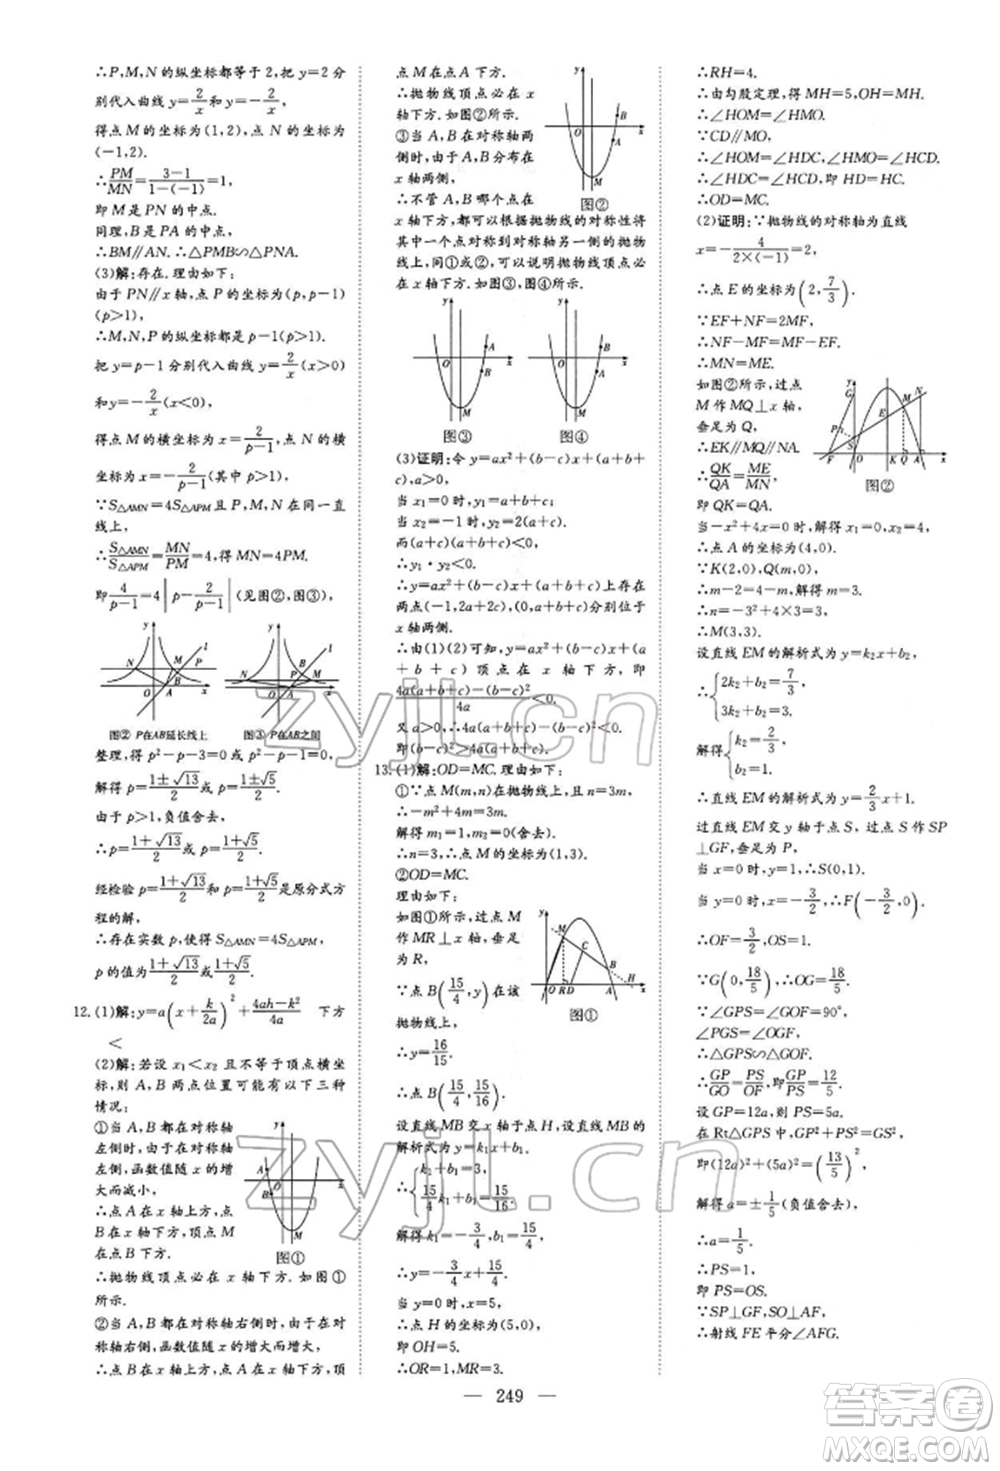 ∴P,M,N的纵坐标都等于2,把y=2分
别代入曲线y=2/x和y=-2/x,
得点M的坐标为(1,2),点N的坐标为
(-1,2).
∴PM/MN=(3-1)/(1-(-1))=1,
即M是PN的中点.
同理,B是PA的中点,
∴BM∥AN.∴△PMB∽△PNA.
(3)解:存在.理由如下:
由于PN∥x轴,点P的坐标为(p,p-1)
(p>1).
∴M,N,P的纵坐标都是p-1(p>1).
把y=p-1分别代入曲线y=2/x(x>0)
和y=-2/x(x<0),
得点M的横坐标为x=2/(p-1),点N的横
坐标为x=-2/(p-1)(其中p>1).
∵S△AMN=4S△APM且P,M,N在同一直
线上,
∴S△AMN/S△APM=MN/PM=4,得MN=4PM.
即4/(p-1)=4|p-2/(p-1)|(见图②,图③),
图② P在AB延长线上 图③ P在AB之间
整理,得p²-p-3=0或p²-p-1=0.
解得p=(1±√13)/2或p=(1±√5)/2.
由于p>1,负值舍去.
∴p=(1+√13)/2或p=(1+√5)/2.
经检验p=(1+√13)/2和p=(1+√5)/2是原分式方
程的解,
∴存在实数p,使得S△AMN=4S△APM,
p的值为(1+√13)/2或(1+√5)/2.
12.(1)解:y=a(x+k/2a)²+(4ah-k²)/4a 下方
<
(2)解:若设x₁<x₂且不等于顶点横坐
标,则A,B两点位置可能有以下三种
情况:
①当A,B都在对称轴
左侧时,由于在对称轴
左侧,函数值随x的增
大而减小,
∴点A在x轴上方,点
B在x轴下方,顶点M
在点B下方.
图①
∴抛物线顶点必在x轴下方.如图①
所示.
②当A,B都在对称轴右侧时,由于在
对称轴右侧,函数值随x的增大而增大,
∴点B在x轴上方,点A在x轴下方,顶
点M在点A下方.
∴抛物线顶点必在x轴
下方.如图②所示.
③当A,B在对称轴两
侧时,由于A,B分布在
x轴两侧,
图②
∴不管A,B哪个点在
x轴下方,都可以根据抛物线的对称性将
其中一个点对称到对称轴另一侧的抛物
线上,同①或②,可以说明抛物线顶点必
在x轴下方.如图③,图④所示.
图③ 图④
(3)证明:令y=ax²+(b-c)x+(a+b+
c),a>0,
当x₁=0时,y₁=a+b+c;
当x₂=-1时,y₂=2(a+c).
而(a+c)(a+b+c)<0,
∴y₁·y₂<0.
∴y=ax²+(b-c)x+(a+b+c)上存在
两点(-1,2a+2c),(0,a+b+c)分别位于
x轴两侧.
∴由(1)(2)可知,y=ax²+(b-c)x+(a
+b+c)顶点在x轴下方,即
(4a(a+b+c)-(b-c)²)/4a<0.
又a>0,∴4a(a+b+c)-(b-c)²<0.
即(b-c)²>4a(a+b+c).
13.(1)解:OD=MC.理由如下:
①∵点M(m,n)在抛物线上,且n=3m,
∴-m²+4m=3m.
解得m₁=1,m₂=0(舍去).
∴n=3,∴点M的坐标为(1,3).
②OD=MC.
理由如下:
如图①所示,过点M
作MR⊥x轴,垂足
为R,
∵点B(15/4,y)在该
抛物线上,
图①
∴y=15/16.
∴点B(15/4,15/16).
设直线MB交x轴于点H,直线MB的
解析式为y=k₁x+b₁.
∴{k₁+b₁=3, 15/4k₁+b₁=15/16.
解得k₁=-3/4,b₁=15/4.
∴y=-3/4x+15/4.
当y=0时,x=5,
∴点H的坐标为(5,0),
即OH=5.
∴OR=1,MR=3.
∴RH=4.
∴由勾股定理,得MH=5,OH=MH.
∴∠HOM=∠HMO.
∵CD∥MO,
∴∠HOM=∠HDC,∠HMO=∠HCD.
∴∠HDC=∠HCD,即HD=HC.
∴OD=MC.
(2)证明:∵抛物线的对称轴为直线
x=-4/(2×(-1))=2,
∴点E的坐标为(2,7/3).
∵EF+NF=2MF,
∴NF-MF=MF-EF.
∴MN=ME.
如图②所示,过点
M作MQ⊥x轴,
垂足为Q,
∴EK∥MQ∥NA.
∴QK/QA=ME/MN,
图②
即QK=QA.
当-x²+4x=0时,解得x₁=0,x₂=4,
∴点A的坐标为(4,0).
∵K(2,0),Q(m,0),
∴m-2=4-m,解得m=3.
∴n=-3²+4×3=3.
∴M(3,3).
设直线EM的解析式为y=k₂x+b₂,
∴{2k₂+b₂=7/3, 3k₂+b₂=3.
解得{k₂=2/3, b₂=1.
∴直线EM的解析式为y=2/3x+1.
过过直线EM交y轴于点S,过点S作SP
⊥GF,垂足为P,
当x=0时,y=1,∴S(0,1).
当y=0时,x=-3/2,∴F(-3/2,0).
∴OF=3/2,OS=1.
∵G(0,18/5),∴OG=18/5.
∵∠GPS=∠GOF=90°,
∠PGS=∠OGF.
∴△GPS∽△GOF.
∴GP/GO=PS/OF,GP/PS=12/5.
设GP=12a,则PS=5a.
在Rt△GPS中,GP²+PS²=GS²,
即(12a)²+(5a)²=(13/5)²,
解得a=±1/5(负值舍去).
∴a=1/5.
∴PS=1,
即PS=OS.
∵SP⊥GF,SO⊥AF,
∴射线FE平分∠AFG.
— 249 —
zyjl.cn
zyjl.cn
答案圈
MXQE.COM